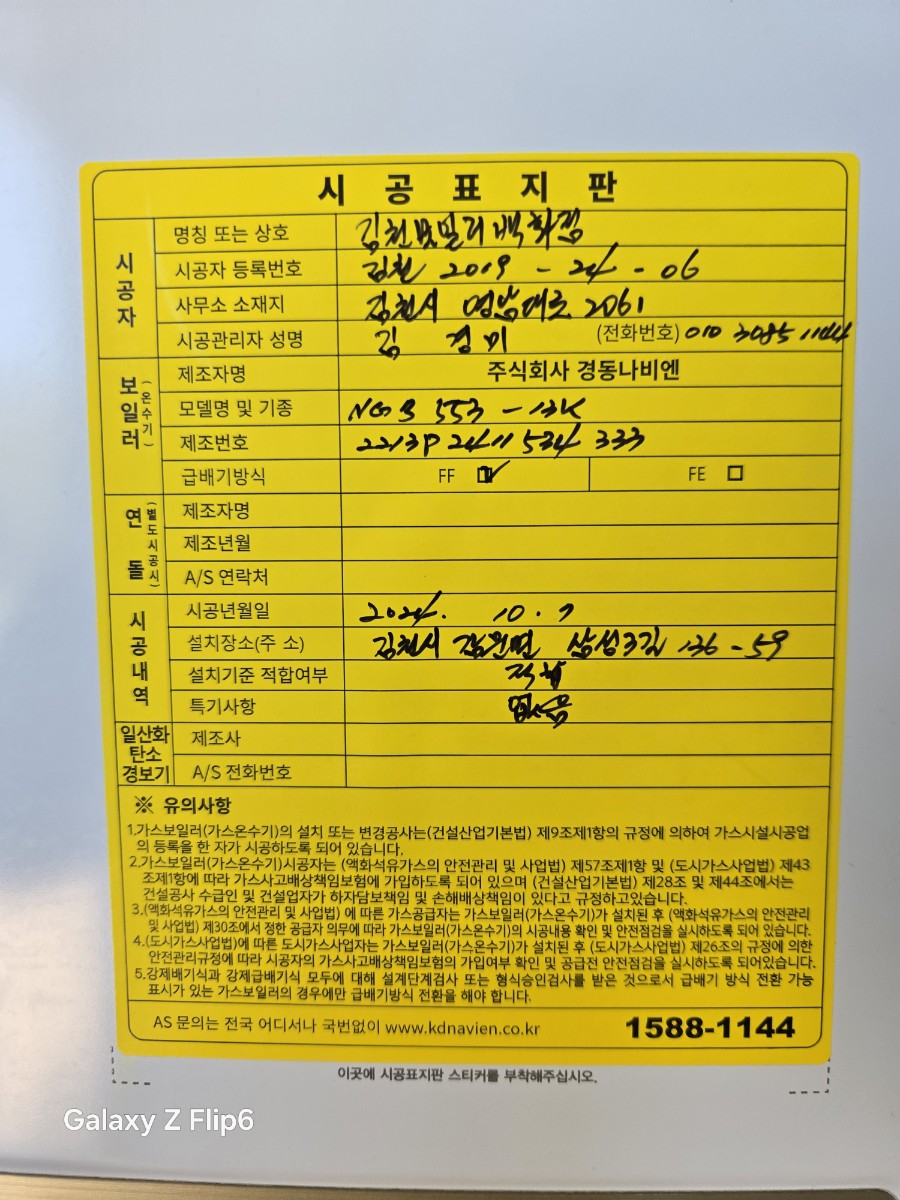 시 공 표 지 판
시공자
명칭 또는 상호 김천 밀리 백화점
시공자 등록번호 김천 2019 - 24 - 06
사무소 소재지 김천시 영남대로 2061
시공관리자 성명 김 경미 (전화번호) 010 3085 1144
보일러 (온수기)
제조자명 주식회사 경동나비엔
모델명 및 기종 NGB 553 - 13K
제조번호 2213P 2411 534 333
급배기방식 FF ☑ FE □
연돌 (별도시공시)
제조자명
제조년월
A/S 연락처
시공내역
시공년월일 2024. 10. 7
설치장소(주 소) 김천시 삼성3길 136 - 59
설치기준 적합여부 적합
특기사항 없음
일산화탄소경보기
제조사
A/S 전화번호
※ 유의사항
1.가스보일러(가스온수기)의 설치 또는 변경공사는(건설산업기본법) 제9조제1항의 규정에 의하여 가스시설시공업
의 등록을 한 자가 시공하도록 되어 있습니다.
2.가스보일러(가스온수기)시공자는 (액화석유가스의 안전관리 및 사업법) 제57조제1항 및 (도시가스사업법) 제43
조제1항에 따라 가스사고배상책임보험에 가입하도록 되어 있으며 (건설산업기본법) 제28조 및 제44조에서는
건설공사 수급인 및 건설업자가 하자담보책임 및 손해배상책임이 있다고 규정하고있습니다.
3.(액화석유가스의 안전관리 및 사업법) 에 따른 가스공급자는 가스보일러(가스온수기)가 설치된 후 (액화석유가스의 안전관리
및 사업법) 제30조에서 정한 공급자 의무에 따라 가스보일러(가스온수기)의 시공내용 확인 및 안전점검을 실시하도록 되어 있습니다.
4.(도시가스사업법)에 따른 도시가스사업자는 가스보일러(가스온수기)가 설치된 후 (도시가스사업법) 제26조의 규정에 의한
안전관리규정에 따라 시공자의 가스사고배상책임보험의 가입여부 확인 및 공급전 안전점검을 실시하도록 되어있습니다.
5.강제배기식과 강제급배기식 모두에 대해 설계단계검사 또는 형식승인검사를 받은 것으로서 급배기 방식 전환 가능
표시가 있는 가스보일러의 경우에만 급배기방식 전환을 해야 합니다.
AS 문의는 전국 어디서나 국번없이 www.kdnavien.co.kr 1588-1144
이곳에 시공표지판 스티커를 부착해주십시오.
Galaxy Z Flip6